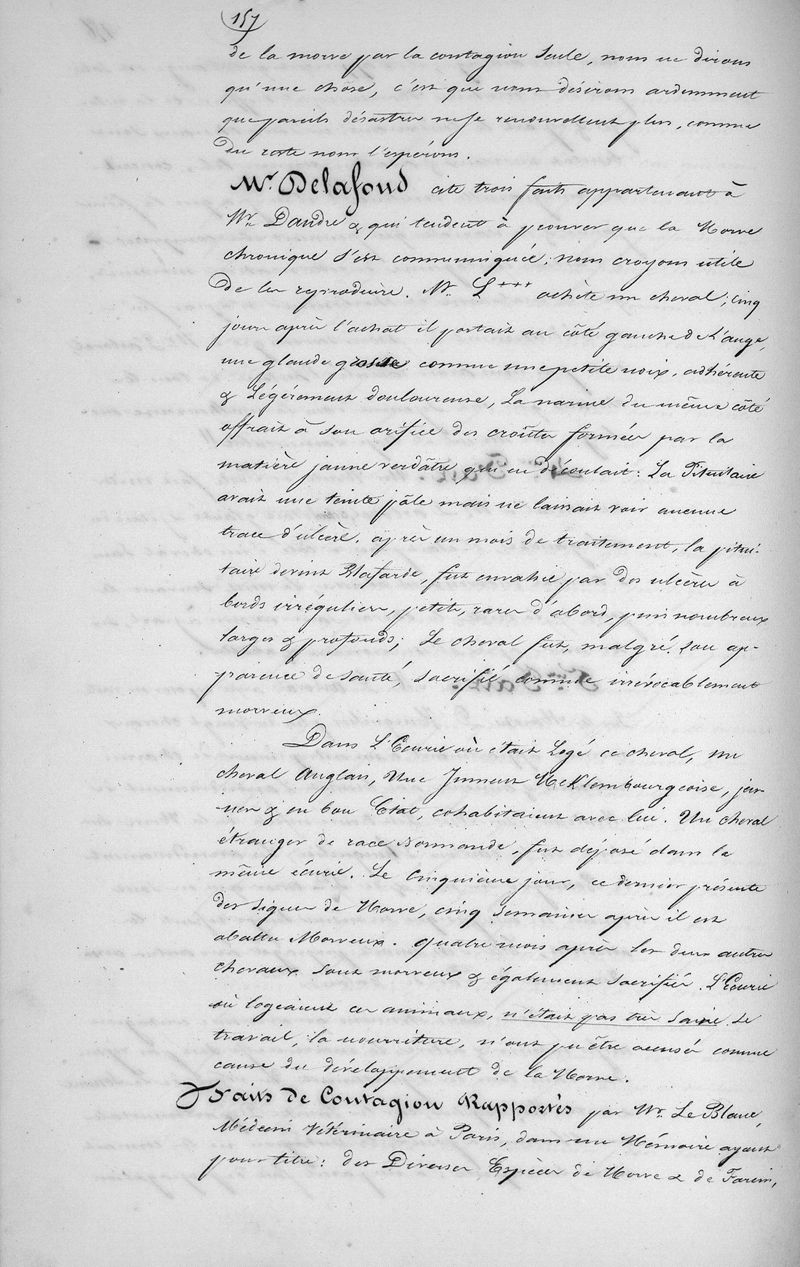 157
de la morve par la contagion seule, nous ne dirons
qu'une chose, c'est que nous désirons ardemment
que pareils désastres ne se renouvellent plus, comme
du reste nous l'espérons.
Mr. Delafond cite trois faits appartenant à
Mr. Dandre & qui tendent à prouver que la Morve
chronique s'est communiquée; nous croyons utile
de les reproduire. Mr. L*** achète un cheval; cinq
jours après l'achat il portait au côté gauche de l'auge,
une glande grosse comme une petite noix, adhérente
& légérement douloureuse, la narine du même côté
offrait à son orifice des croûtes formées par la
matière jaune verdâtre qui en découlait: La Pituitaire
avait une teinte pâle mais ne laissait voir aucune
trace d'ulcère. après un mois de traitement, la pitui-
taire devint Blafarde, fut envahie par des ulcères à
bords irréguliers, petits, rares d'abord, puis nombreux
larges & profonds; Le cheval fut, malgré son ap-
parence de santé, sacrifié comme irrévocablement
morveux.
Dans l'Écurie où était Logé ce cheval, un
cheval Anglais, Une Jument Meklembourgeoise, jeu-
nes & en bon État, cohabitaient avec lui. Un cheval
étranger de race normande, fut déposé dans la
même écurie. Le Cinquième jour, ce dernier présente
des signes de Morve, cinq semaines après il est
abattu Morveux. quatre mois après les deux autres
chevaux sont morveux & également sacrifiés. L'Écurie
où logeaient ces animaux, n'était pas très saine. Le
travail, la nourriture, n'ont pu être accusés comme
cause du développement de la Morve.
Faits de Contagion Rapportés par Mr. Le Blanc,
Médecin Vétérinaire à Paris, dans un Mémoire ayant
pour titre: des Diverses Espèces de Morve & de Farcin,